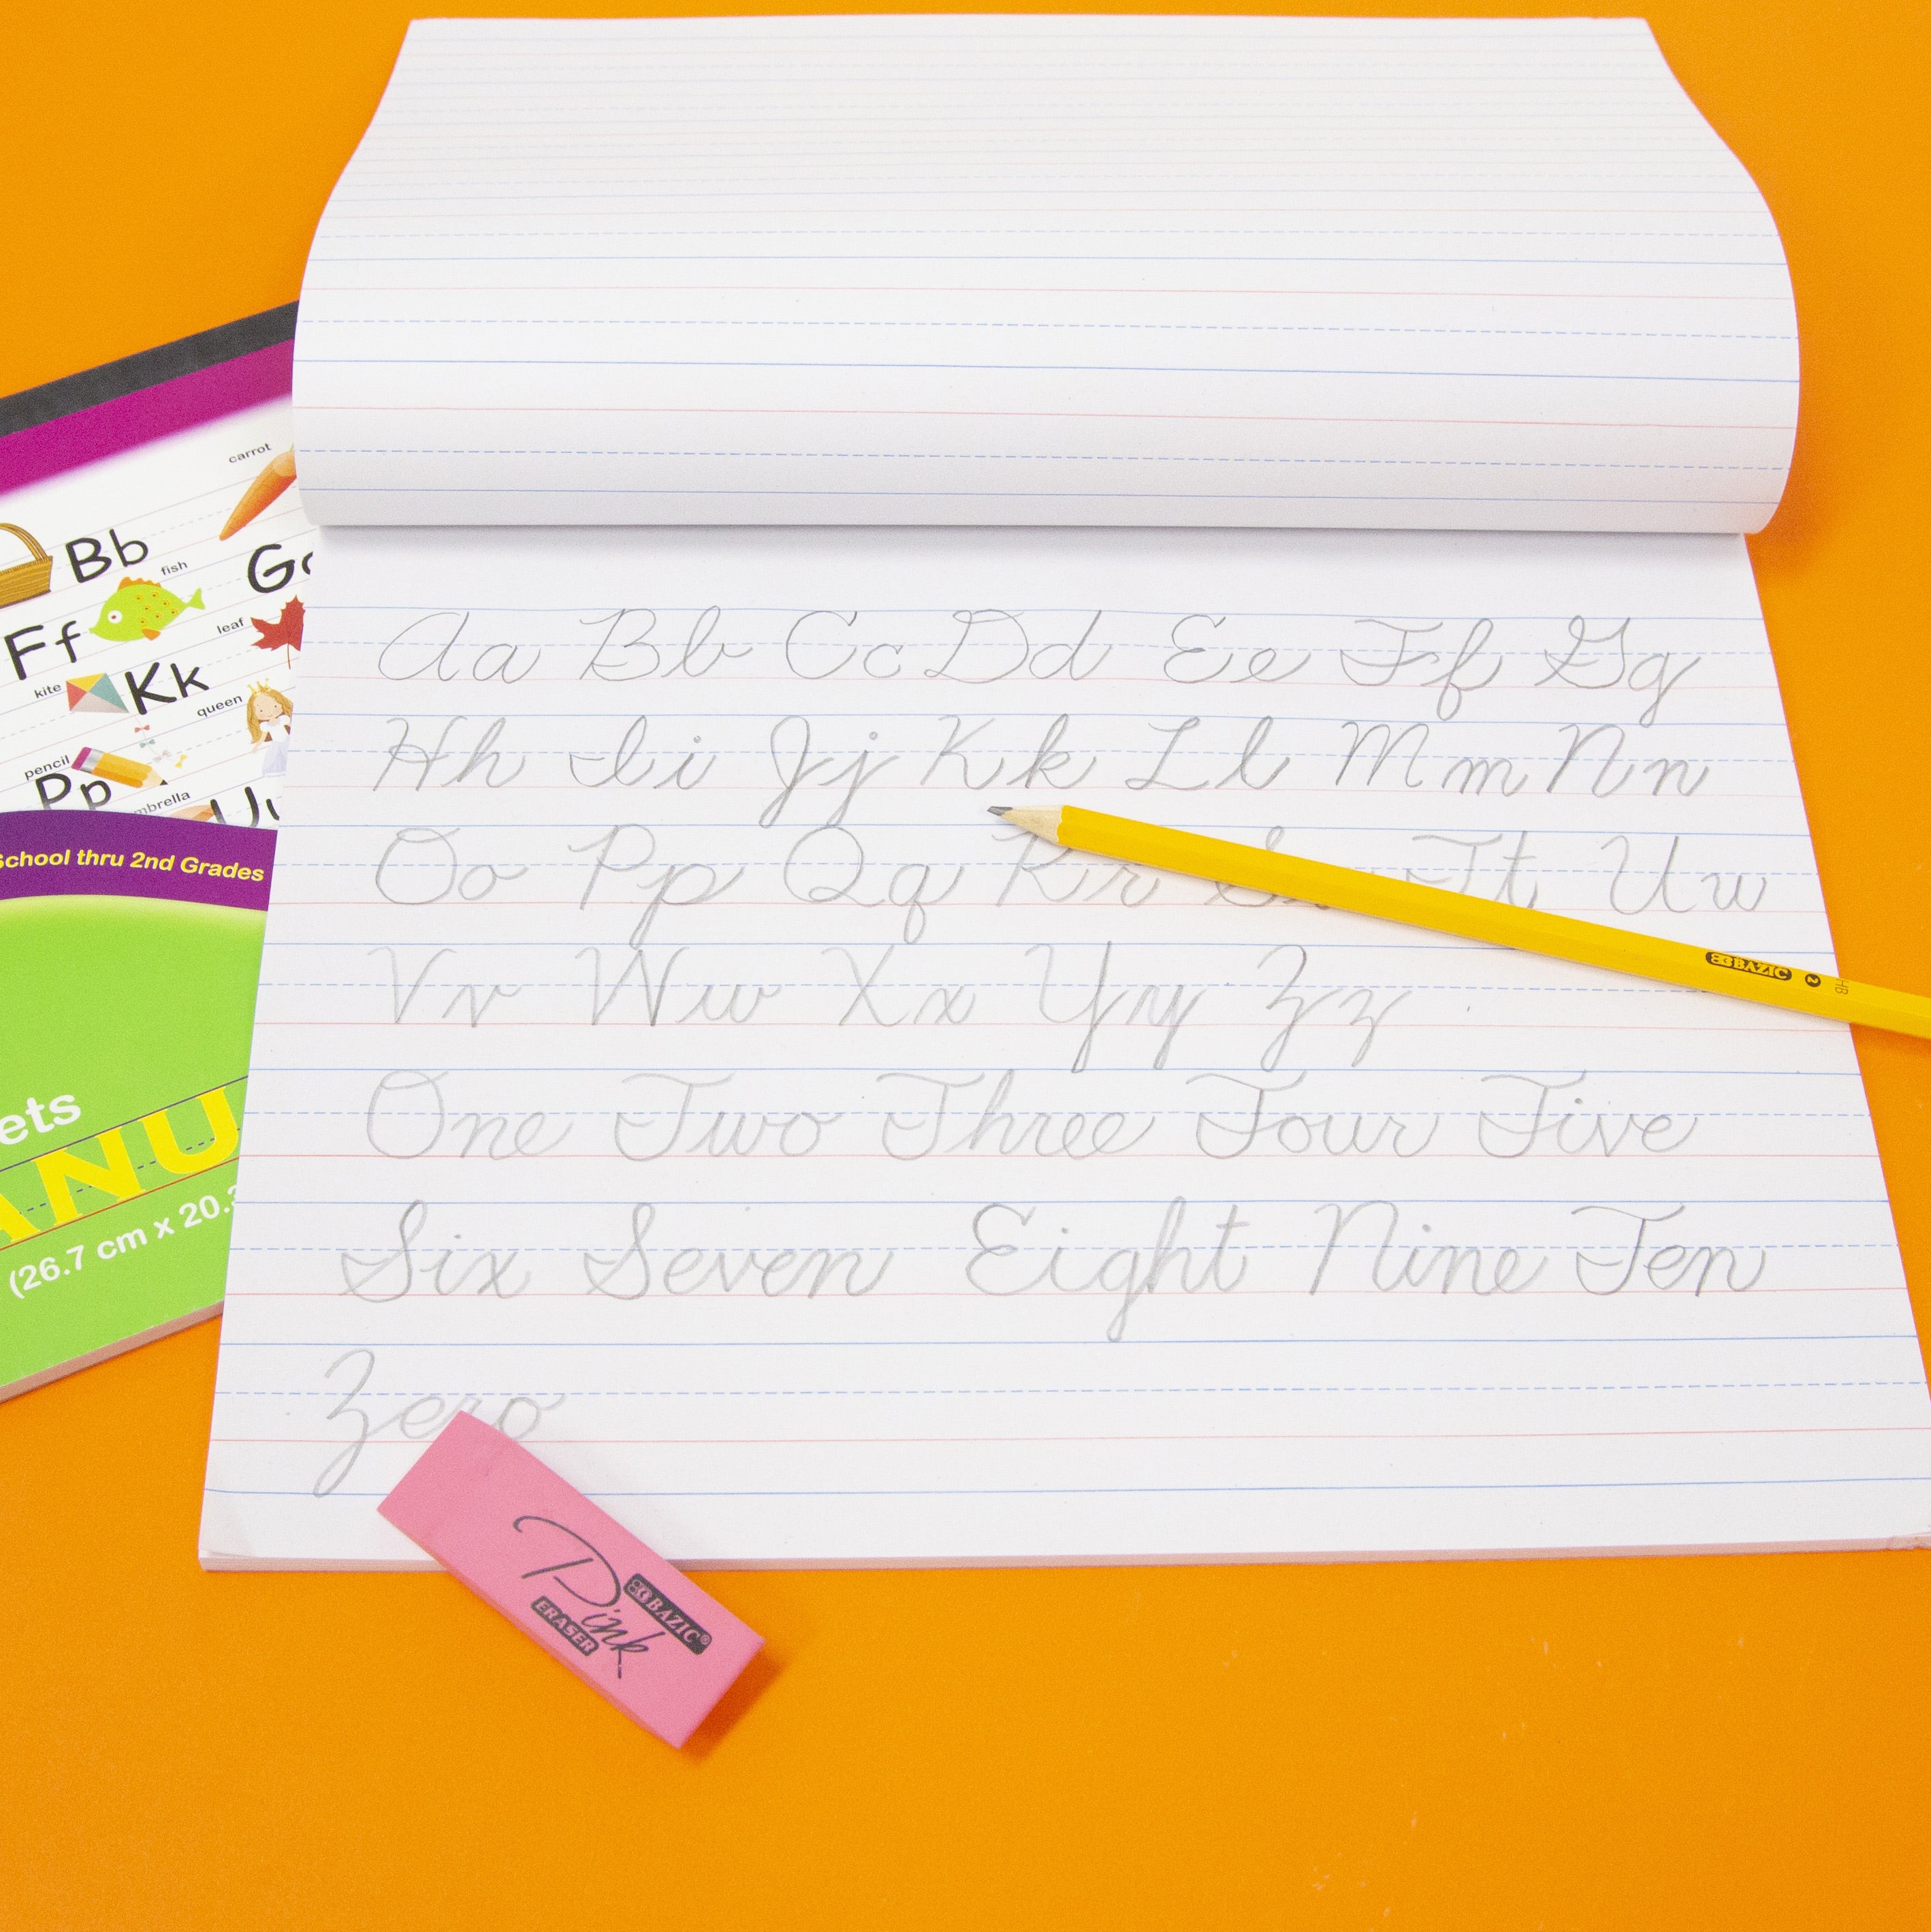 carrot
Bb
fish
Ff
leaf
kite
Kk
queen
pencil
Pp
School thru 2nd Grades
ets
(26.7 cm x 20.3
Aa Bb Cc Dd Ee Ff Gg
Hh Ii Jj Kk Ll Mm Nn
Oo Pp Qq Rr Ss Tt Uu
Vv Ww Xx Yy Zz
One Two Three Four Five
Six Seven Eight Nine Ten
Zero
BAZIC 2 HB
BAZIC®
Pink
ERASER